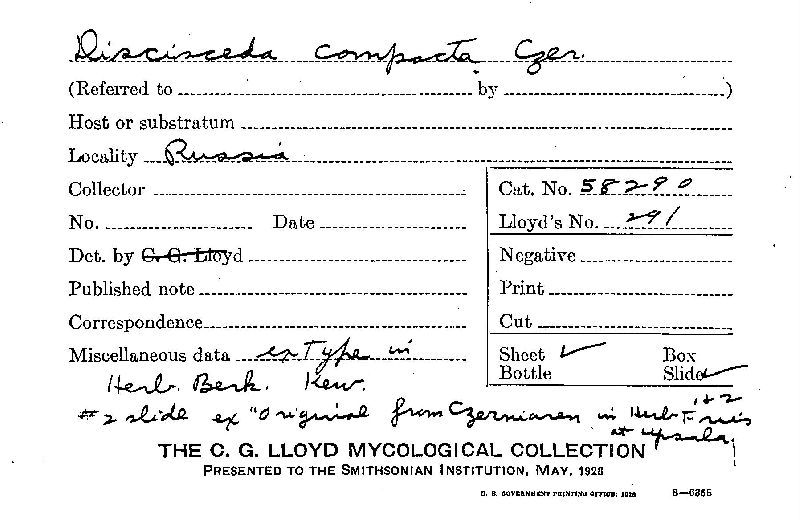 Discisceda compacta Czer.
(Referred to by )
Host or substratum
Locality Russia
Collector
Cat. No. 58290
No. Date
Lloyd's No. 291
Det. by C. G. Lloyd
Negative
Published note
Print
Correspondence
Cut
Miscellaneous data ex Type in
Sheet ✓ Box
Herb. Berk. Kew.
Bottle Slide ✓
1 & 2
#2 slide ex "Original from Czerniaren in Herb Fries
at Upsala
THE C. G. LLOYD MYCOLOGICAL COLLECTION
PRESENTED TO THE SMITHSONIAN INSTITUTION, MAY, 1928
U. S. GOVERNMENT PRINTING OFFICE: 1928 8—6355